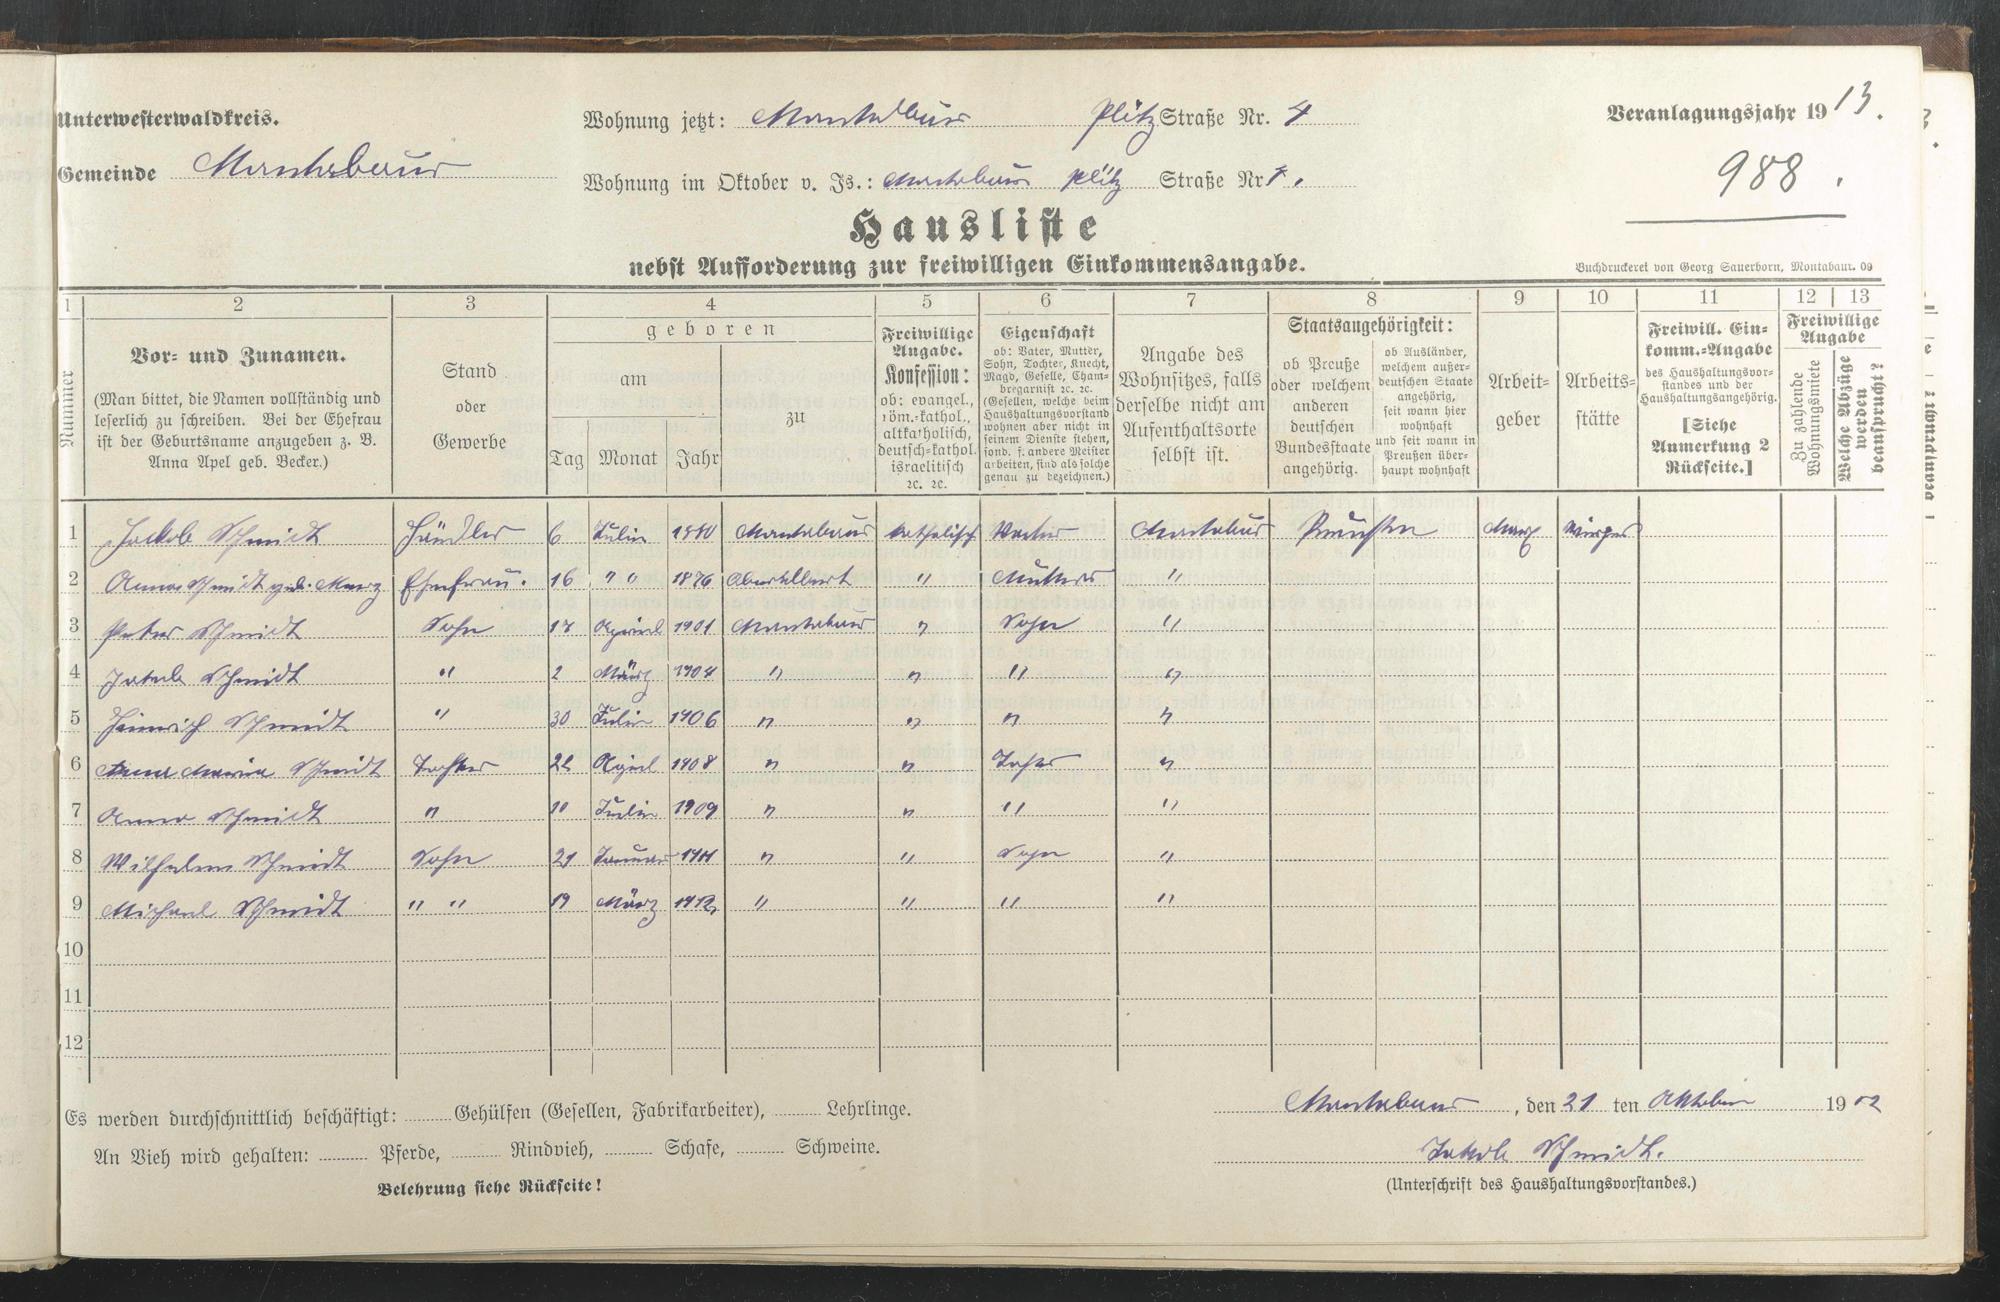 Unterwesterwaldkreis.
Gemeinde Montabaur
Wohnung jetzt: Montabaur Plötz Straße Nr. 4
Wohnung im Oktober v. Js.: Montabaur Plötz Straße Nr
Veranlagungsjahr 1913.
988.
Hausliste
nebst Aufforderung zur freiwilligen Einkommensangabe.
Buchdruckerei von Georg Sauerborn, Montabaur. 09
1 2 3 4 5 6 7 8 9 10 11 12 13
Nummer
Vor- und Zunamen.
(Man bittet, die Namen vollständig und
leserlich zu schreiben. Bei der Ehefrau
ist der Geburtsname anzugeben z. B.
Anna Apel geb. Becker.)
Stand
oder
Gewerbe
geboren
am
Tag Monat Jahr
zu
Freiwillige
Angabe.
Konfession:
ob: evangel.,
röm.-kathol.,
altkatholisch,
deutsch-kathol.
israelitisch
ꝛc. ꝛc.
Eigenschaft
ob: Vater, Mutter,
Sohn, Tochter, Knecht,
Magd, Geselle, Cham-
bregarnist ꝛc. ꝛc.
(Gesellen, welche beim
Haushaltungsvorstand
wohnen aber nicht in
seinem Dienste stehen,
sond. f. andere Meister
arbeiten, sind als solche
genau zu bezeichnen.)
Angabe des
Wohnsitzes, falls
derselbe nicht am
Aufenthaltsorte
selbst ist.
Staatsangehörigkeit:
ob Preuße
oder welchem
anderen
deutschen
Bundesstaate
angehörig.
ob Ausländer,
welchem außer-
deutschen Staate
angehörig,
seit wann hier
wohnhaft
und seit wann in
Preußen über-
haupt wohnhaft
Arbeit-
geber
Arbeits-
stätte
Freiwill. Ein-
komm.-Angabe
des Haushaltungsvor-
standes und der
Haushaltungsangehörig.
[Siehe
Anmerkung 2
Rückseite.]
Freiwillige
Angabe
Zu zahlende
Wohnungsmiete
Welche Räume
waren
beansprucht?
1 Jackob Schmidt Händler 6 Julie 1880 Montabaur katholisch Vater Montabaur Preußen Marx Wirges
2 Anna Schmidt geb. Marx Ehefrau. 16 " " 1876 Oberelbert " Mutter "
3 Peter Schmidt Sohn 17 April 1901 Montabaur " Sohn "
4 Jakob Schmidt " 2 März 1904 " " " "
5 Heinrich Schmidt " 30 Julie 1906 " " " "
6 Anna Maria Schmidt Tochter 22 April 1908 " " Tochter "
7 Anna Schmidt " Julie 1909 " " " "
8 Wilhelm Schmidt Sohn 21 Januar 1911 " " Sohn "
9 Michael Schmidt " " 19 März 1912 " " " "
10
11
12
Es werden durchschnittlich beschäftigt: Gehülfen (Gesellen, Fabrikarbeiter), Lehrlinge.
An Vieh wird gehalten: Pferde, Rindvieh, Schafe, Schweine.
Belehrung siehe Rückseite!
Montabaur, den 21 ten Oktober 1902
Jakob Schmidt.
(Unterschrift des Haushaltungsvorstandes.)